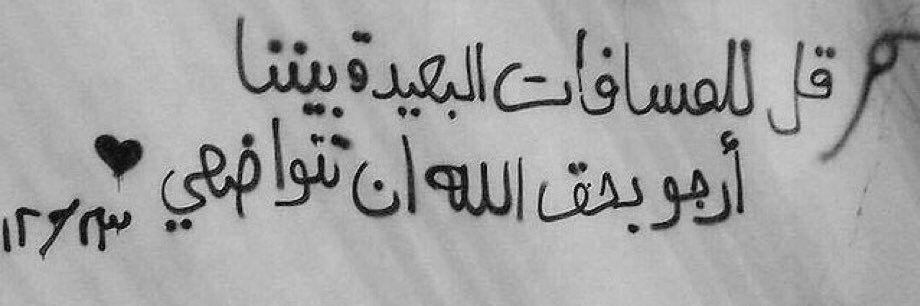 قل للمسافات البعيدة بيننا
أرجو بحق الله ان تتواضعي